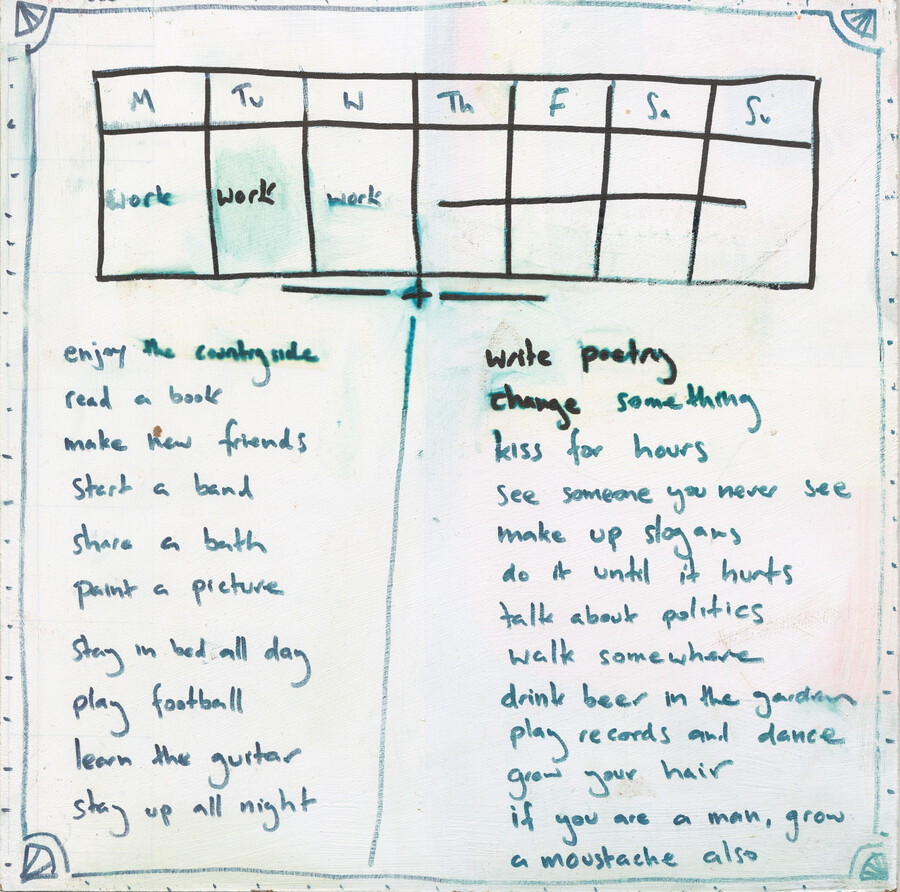 M Tu W Th F Sa Su
work work work
enjoy the countryside
read a book
make new friends
start a band
share a bath
paint a picture
stay in bed all day
play football
learn the guitar
stay up all night
write poetry
change something
kiss for hours
see someone you never see
make up slogans
do it until it hurts
talk about politics
walk somewhere
drink beer in the garden
play records and dance
grow your hair
if you are a man, grow
a moustache also